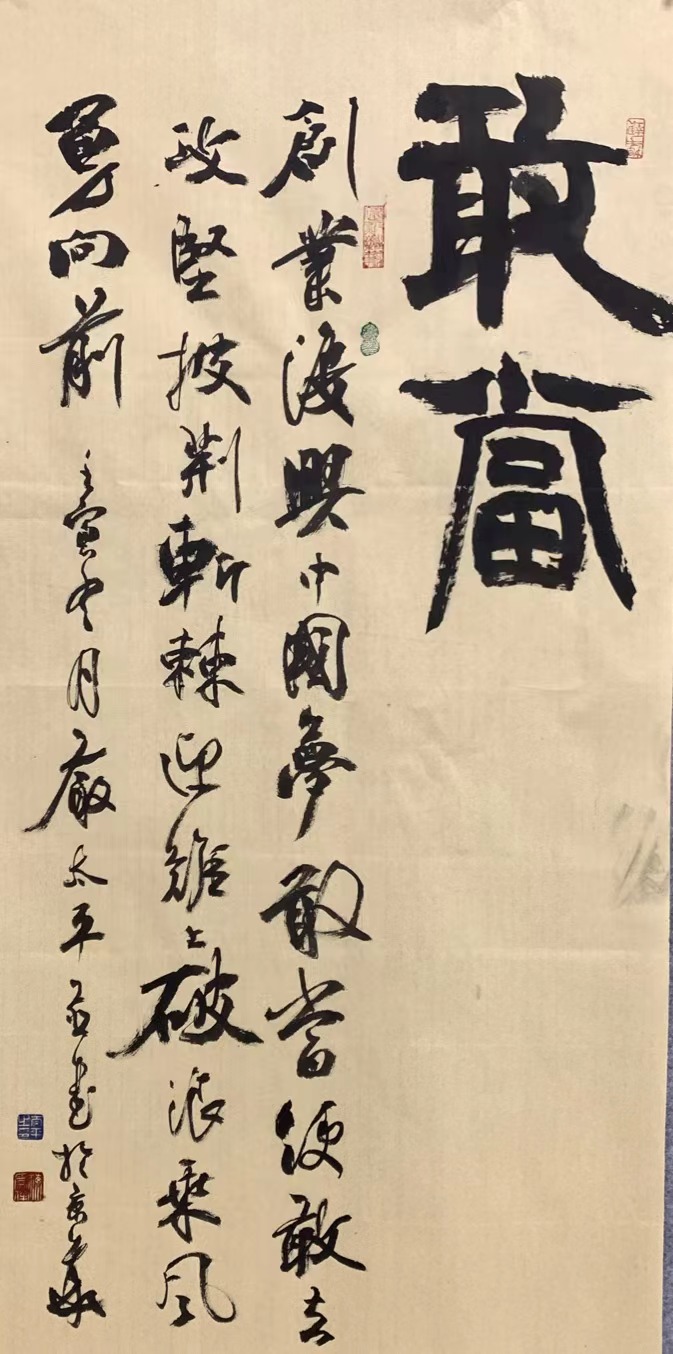 敢當
創業復興中國夢敢當使敢去
攻堅披荆斬棘迎難上破浪乘風
勇向前 壬寅冬月嚴太平並書於京華